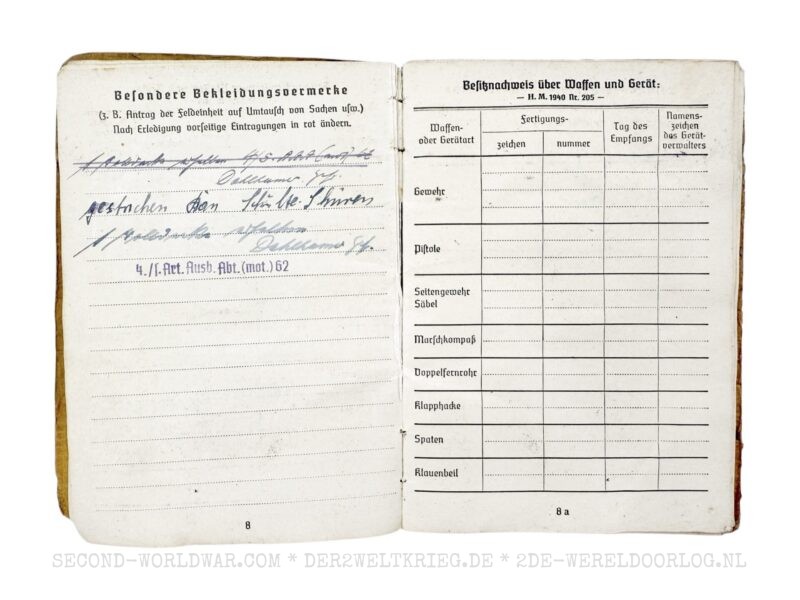 Besondere Bekleidungsvermerke
(z. B. Antrag der Feldeinheit auf Umtausch von Sachen usw.)
Nach Erledigung vorseitige Eintragungen in rot ändern.
gestrichen
4./s. Art. Ausb. Abt. (mot.) 62
8
Besitznachweis über Waffen und Gerät:
— H. M. 1940 Nr. 205 —
Waffen- oder Gerätart
Fertigungs-
zeichen
nummer
Tag des Empfangs
Namens-zeichen des Gerät-verwalters
Gewehr
Pistole
Seitengewehr
Säbel
Marschkompaß
Doppelfernrohr
Klapphacke
Spaten
Klauenbeil
8 a
SECOND-WORLDWAR.COM * DER2WELTKRIEG.DE * 2DE-WERELDOORLOG.NL